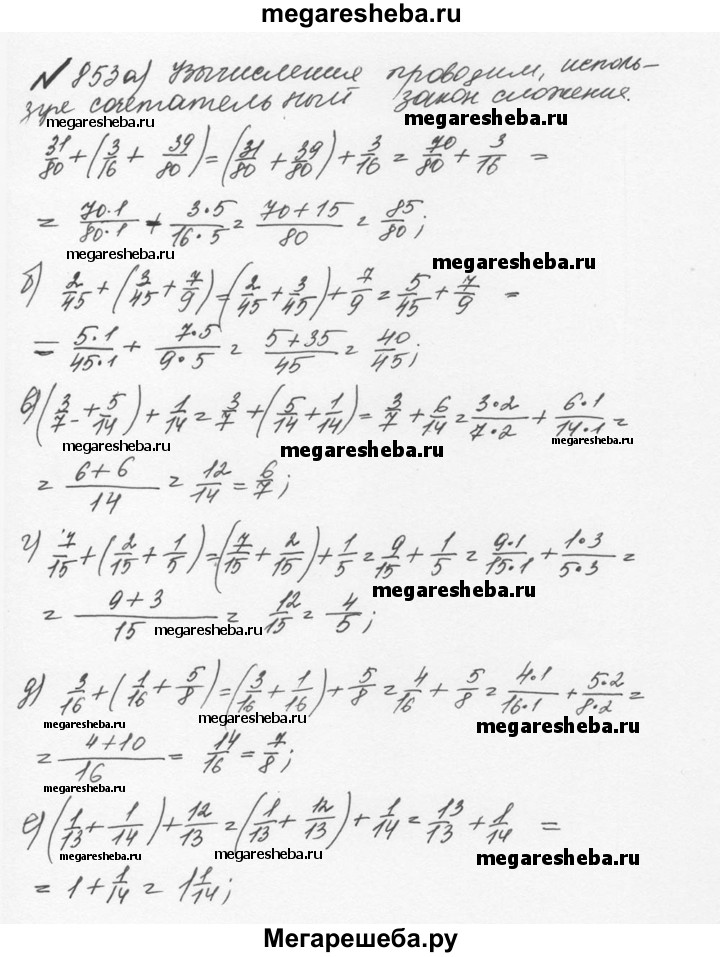 megaresheba.ru
№ 853 а) Вычисления проводим, исполь-
зуя сочетательный закон сложения.
megaresheba.ru megaresheba.ru
31/80 + (3/16 + 39/80) = (31/80 + 39/80) + 3/16 = 70/80 + 3/16 =
= 70·1/80·1 + 3·5/16·5 = 70+15/80 = 85/80;
megaresheba.ru megaresheba.ru
б) 2/45 + (3/45 + 7/9) = (2/45 + 3/45) + 7/9 = 5/45 + 7/9 =
= 5·1/45·1 + 7·5/9·5 = 5+35/45 = 40/45;
в) (3/7 + 5/14) + 1/14 = 3/7 + (5/14 + 1/14) = 3/7 + 6/14 = 3·2/7·2 + 6·1/14·1 =
megaresheba.ru megaresheba.ru megaresheba.ru
= 6+6/14 = 12/14 = 6/7;
г) 7/15 + (2/15 + 1/5) = (7/15 + 2/15) + 1/5 = 9/15 + 1/5 = 9·1/15·1 + 1·3/5·3 =
megaresheba.ru
= 9+3/15 = 12/15 = 4/5;
megaresheba.ru megaresheba.ru
д) 3/16 + (1/16 + 5/8) = (3/16 + 1/16) + 5/8 = 4/16 + 5/8 = 4·1/16·1 + 5·2/8·2 =
megaresheba.ru megaresheba.ru megaresheba.ru
= 4+10/16 = 14/16 = 7/8;
е) (1/13 + 1/14) + 12/13 = (1/13 + 12/13) + 1/14 = 13/13 + 1/14 =
megaresheba.ru megaresheba.ru megaresheba.ru
= 1 + 1/14 = 1 1/14;
Мегарешеба.ру